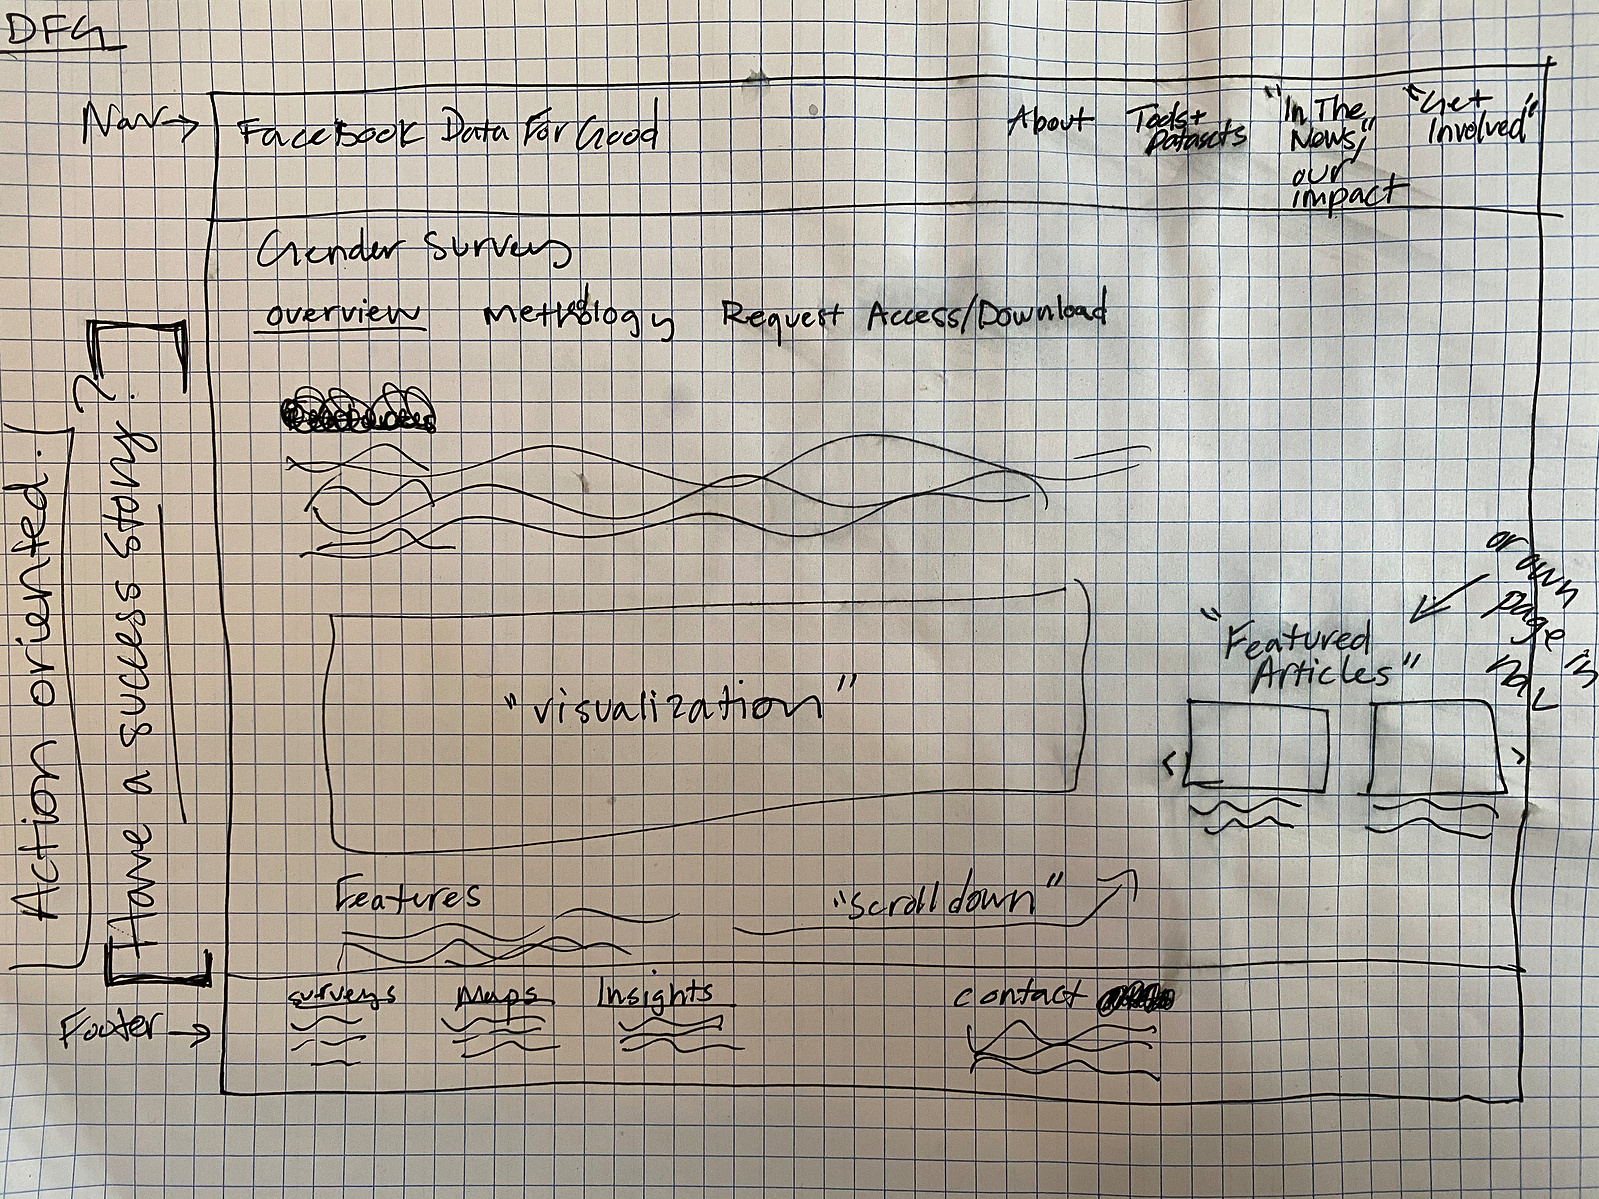 DFG
Nav→
Facebook Data For Good
About
Tools +
Datasets
"In The
News,"
our
impact
"Get
Involved"
Gender Survey
overview   Methodology   Request Access/Download
Action oriented!
Have a success story?
"visualization"
"Featured
Articles"
or own
page in
nav
< >
Features
"scroll down"
Footer→
surveys   Maps   Insights   contact